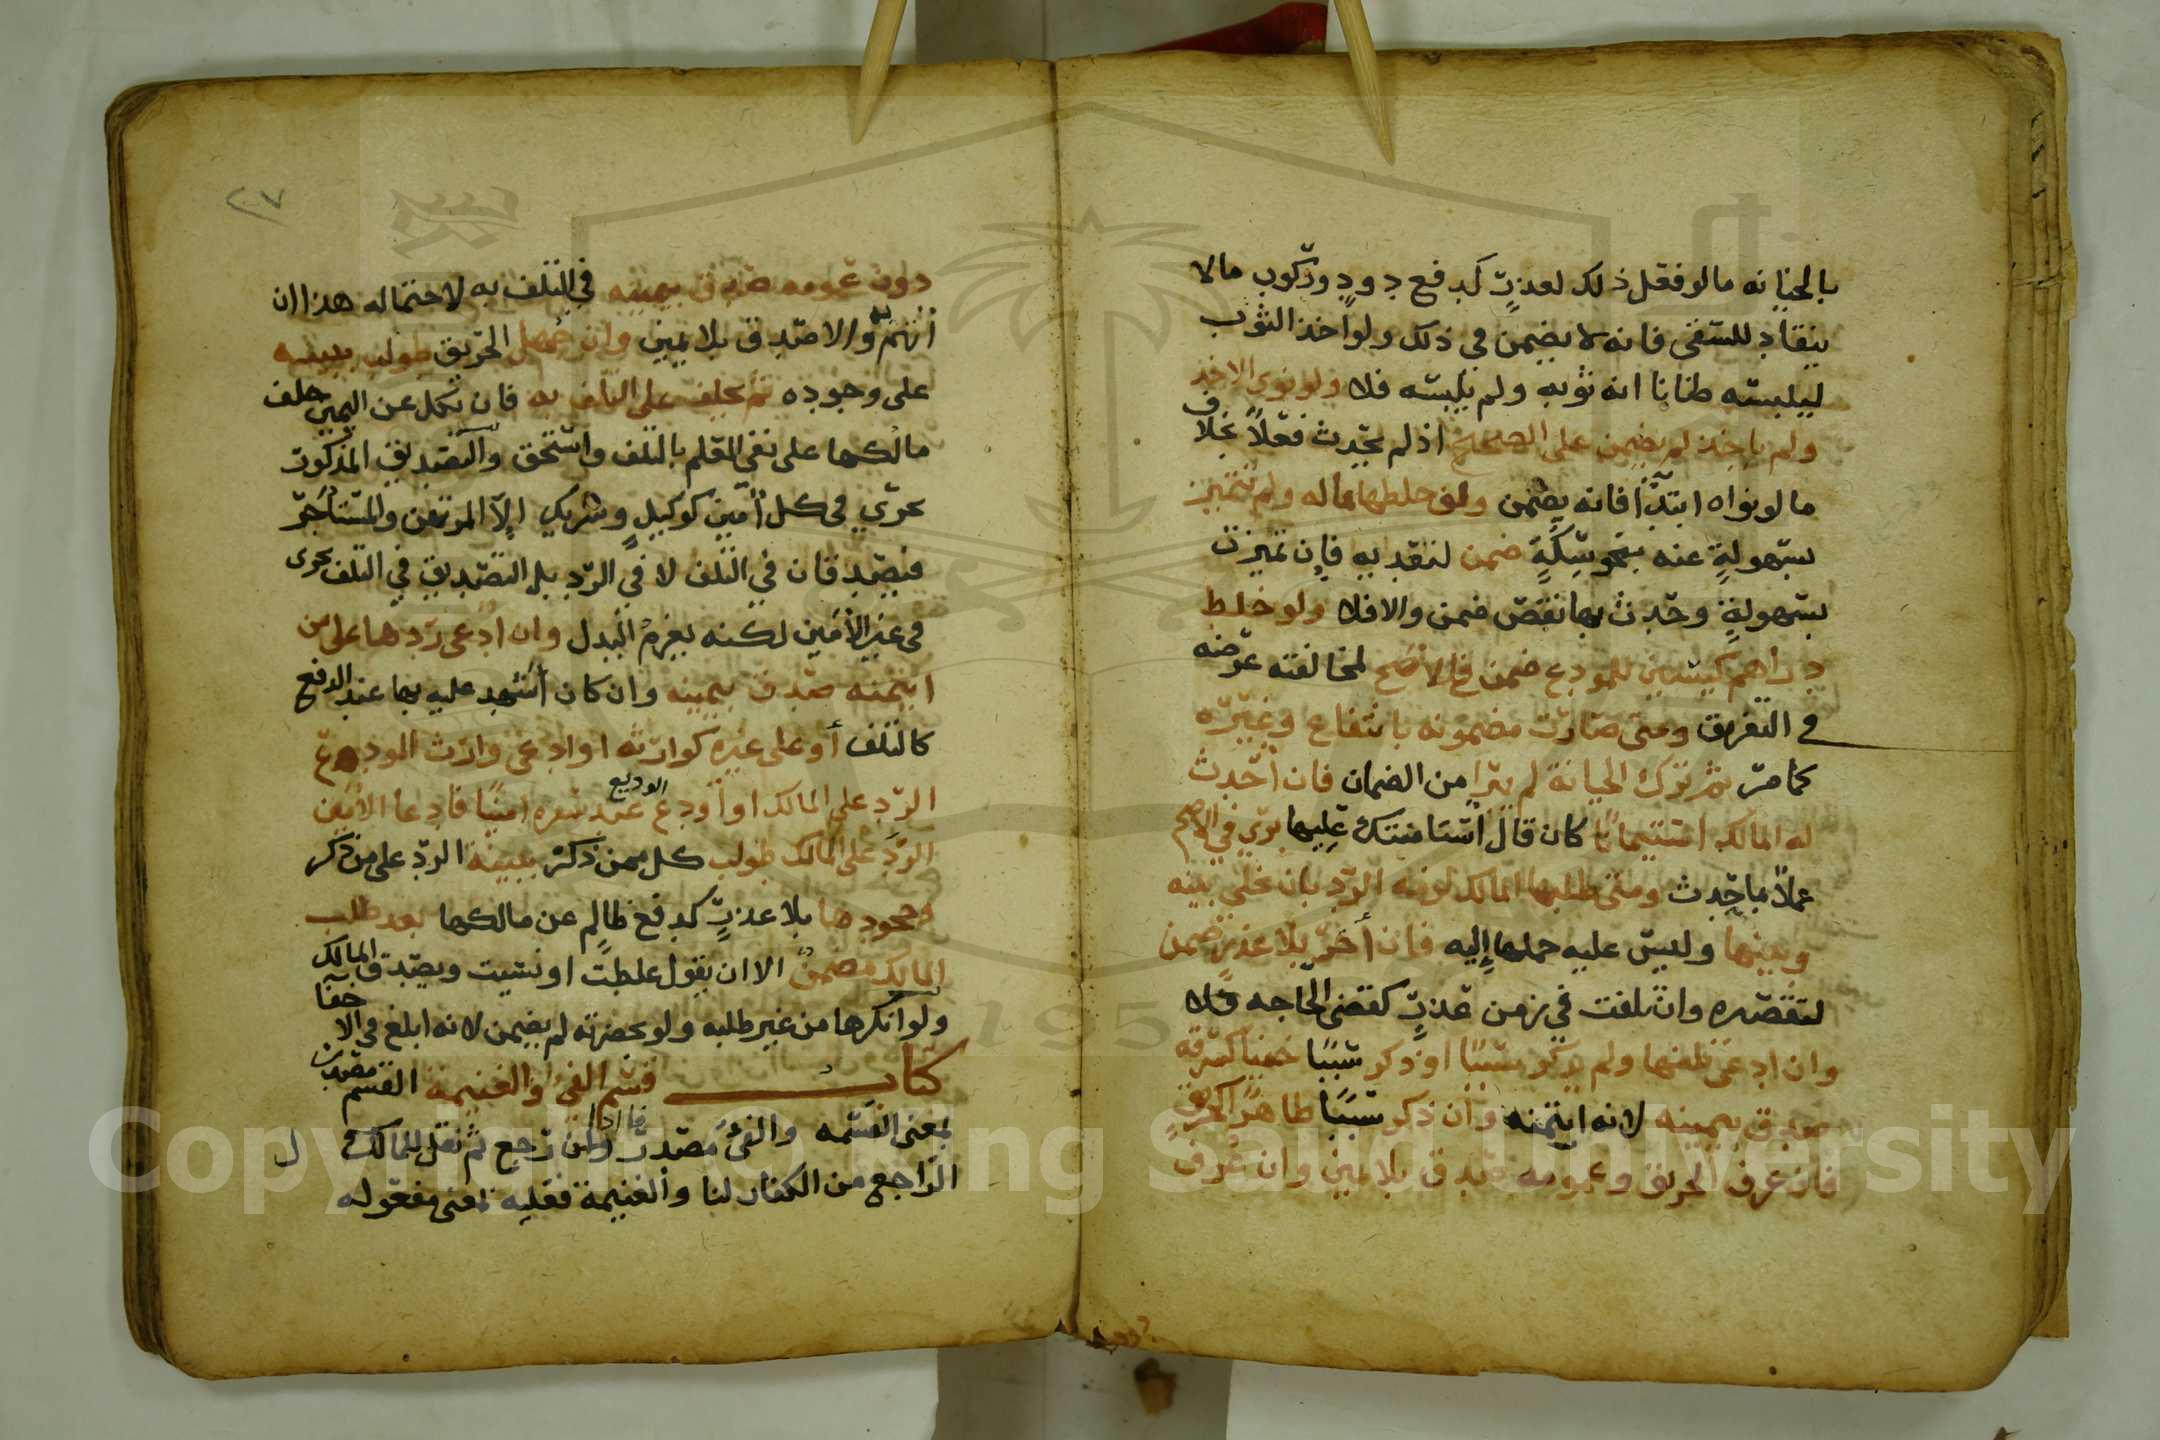 بالخيانه مالو فعل ذلك لعذرٍ كدفع دودٍ وركوب مالا
ينقاد للسقى فانه لا يضمن في ذلك ولو اخذ الثوب
ليلبسه ظانا انه ثوبه ولم يلبسه فلا ولو نوى الاخذ
ولم ياخذ لم يضمن على الصحيح اذ لم يحدث فعلاً بخلاف
ما لو نواه ابتدًا فانه يضمن ولو خلطها بماله ولم تتميز
بسهولةٍ عنه بنحو سِكَّةٍ ضمن لتعديه فإن تميزت
بسهولةٍ وحدث بها نقص ضمن والا فلا ولو خلط
دراهم كيسين للمودع ضمن في الاصح لمخالفته غرضه
في التفريق ومتى صارت مضمونه بانتفاع وغيره
كما مرّ ثم ترك الخيانة لم يبرا من الضمان فان أحدث
له المالك استيمانًا كان قال استامنتك عليها بري في الاصح
عملاً بما حدث ومتى طلبها المالك لزمه الردّ بان يخلي بينه
وبينها وليس عليه حملها إليه فان أخرّ بلا عذرٍ ضمن
لتقصيره وان تلفت في زمن عذرٍ كقضى الحاجه فلا
وان ادعى تلفها ولم يذكر سببًا او ذكر سَببًا خفيا كسرقه
صدق بيمينه لانه ايتمنه وان ذكر سَببًا ظاهرًا كحريق
فان عرف الحريق وعمومه صدق بلا يمين وان عُرف
٢٠٧
دون عمومه صدق بيمينه في التلف به لاحتماله هذا ان
اتهم والا صدق بلا يمين وان جهل الحريق طولب ببينه
على وجوده ثم يحلف على التلف به فان نكل عن اليمين حلف
مالكها على نفي العلم بالتلف واستحق والتصديق المذكور
يجري في كل أمين كوكيلٍ وشريكٍ إلا المرتهن والمستأجر
فيصدقان في التلف لا في الردّ بل التصديق في التلف يجرى
في غير الأمين لكنه يغرمُ البدل وان ادعى ردّها على من
ايتمنه صدق بيمينه وان كان أشهد عليه بها عند الدفع
كالتلف أو على غيره كوارثه او ادعى وارث المودع
الردّ على المالك او أودع عند سفره امينًا فادعا الأمين
الوديع
الردّ على المالك طولب كل ممن ذكر ببينة الردّ على من ذكر
وجحودها بلا عذرٍ كدفع ظالم عن مالكها بعد طلب
المالك مضمنٌ الا ان يقول غلطت او نسيت ويصدقه المالك
ولو انكرها من غير طلبه ولو بحضرته لم يضمن لانه ابلغ في الاخفا
كتاب قسم الفئ والغنيمة القسم مصدر
بمعنى القسمه والفئ مصدر فا اذا رجع ثم نقل للمالك
الراجع من الكفار لنا والغنيمة فعليه بمعنى مفعوله
Copyright © King Saud University
1957